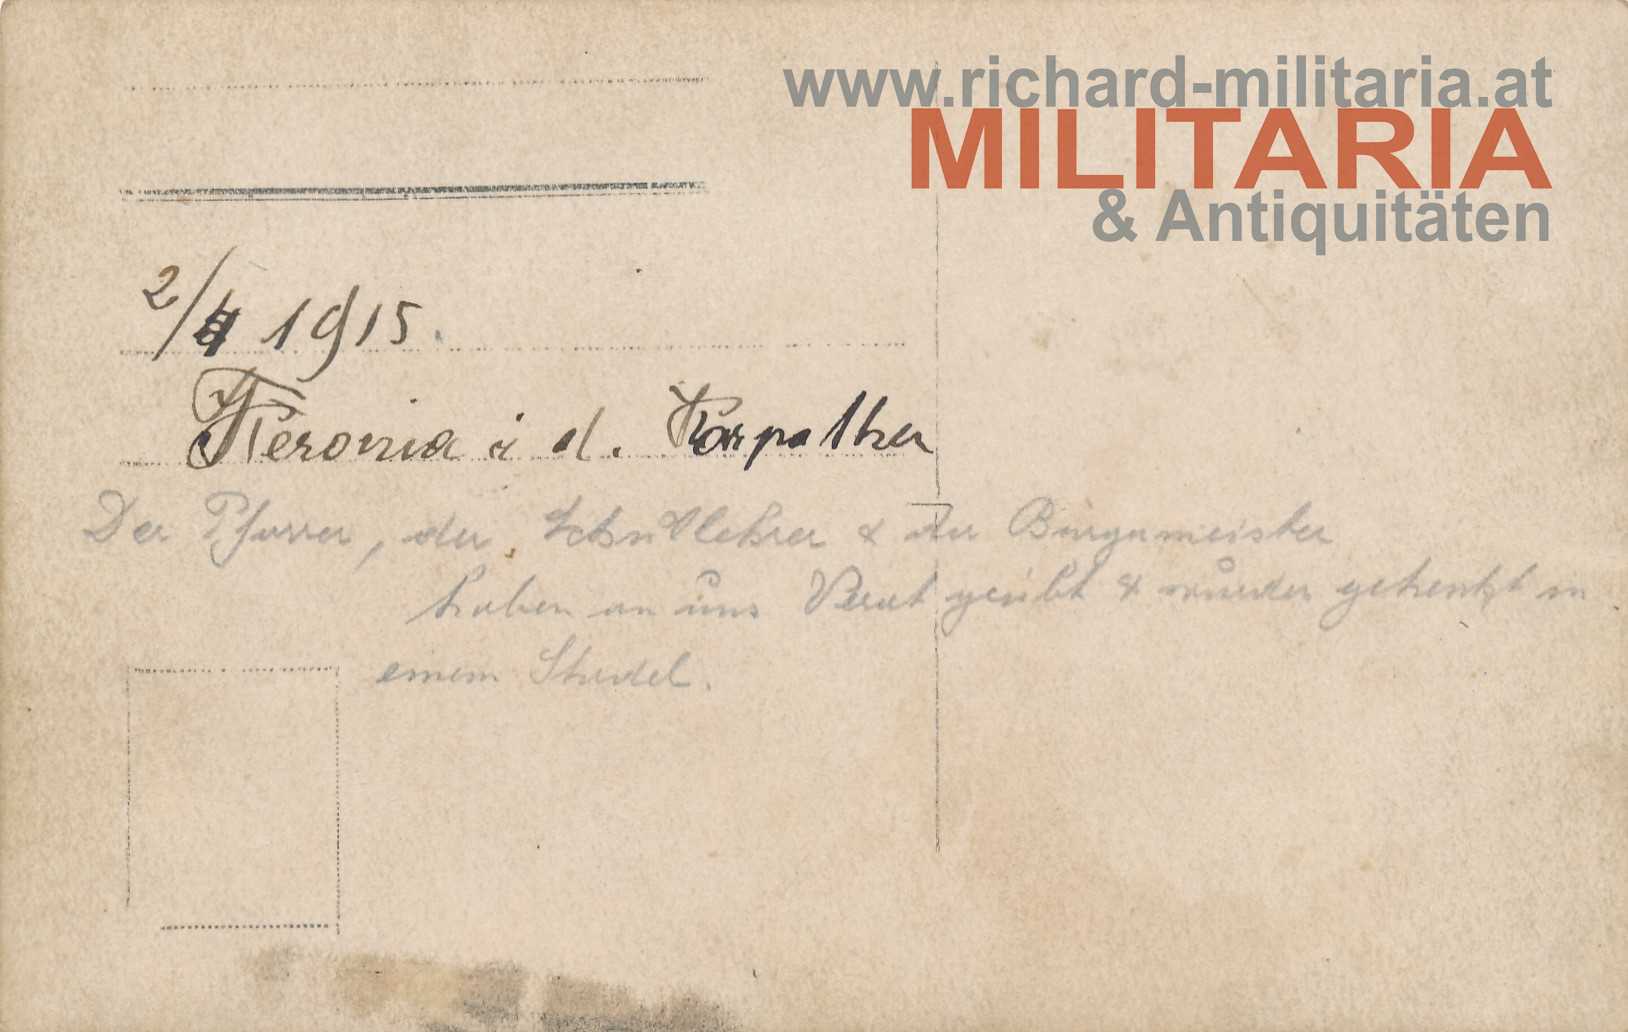 www.richard-militaria.at
MILITARIA
& Antiquitäten
2/4 1915.
i d. Karpathen
Der Pfarrer, der Schullehrer & der Burgameister
haben an uns Verat geübt & wurden gehenkt in
einem Stadel.